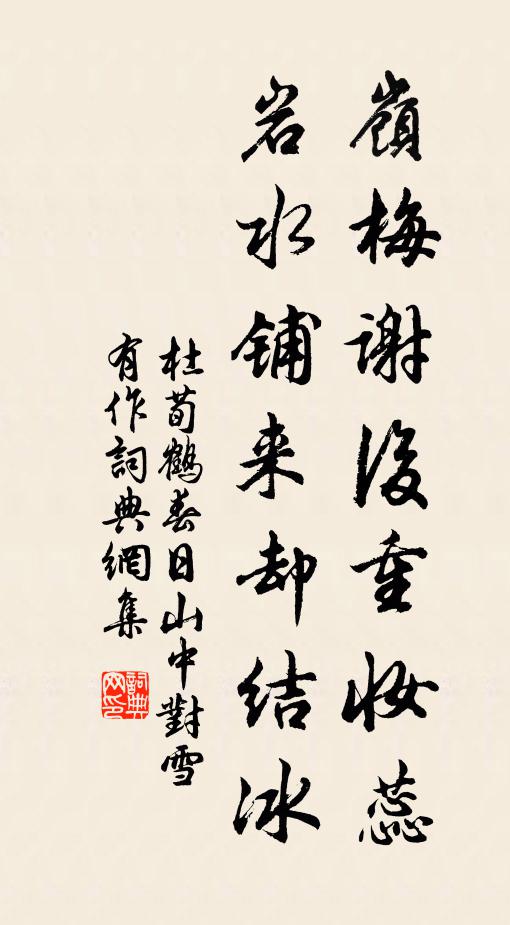 嶺梅謝後重妝蕊
岩水鋪来却結冰
杜荀鶴春日山中對雪
有作詞典網集
詞典
网印